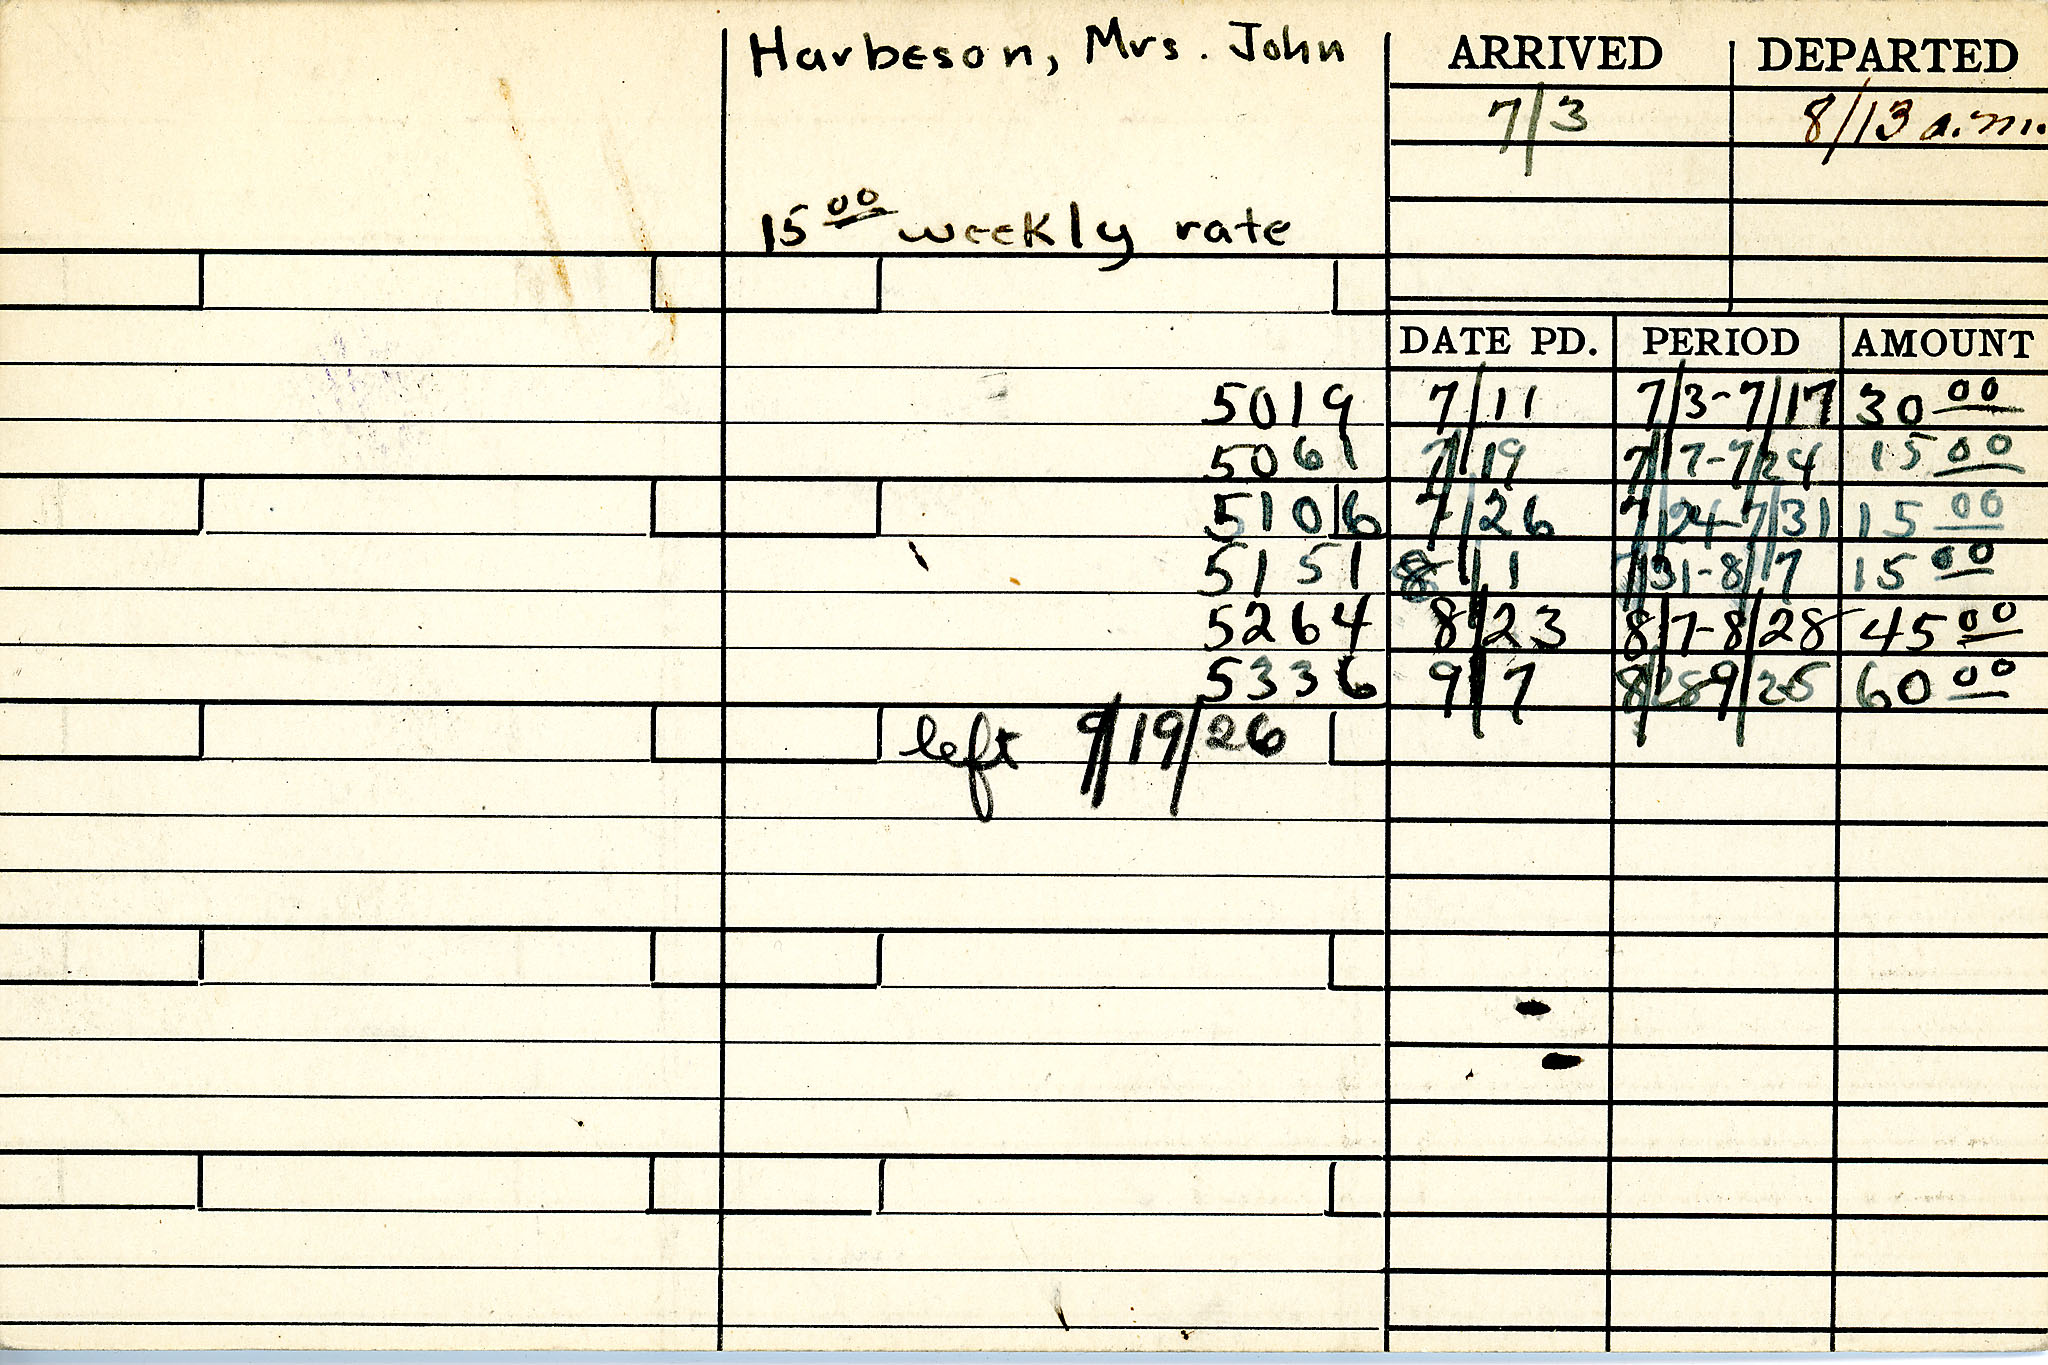 Harbeson, Mrs. John
15 00 weekly rate
ARRIVED DEPARTED
7/3 8/13 a.m.
DATE PD. PERIOD AMOUNT
5019 7/11 7/3-7/17 30 00
5061 7/19 7/17-7/24 15 00
5106 7/26 7/24-7/31 15 00
5151 8/1 7/31-8/7 15 00
5264 8/23 8/7-8/28 45 00
5336 9/7 8/28 9/25 60 00
left 9/19/26